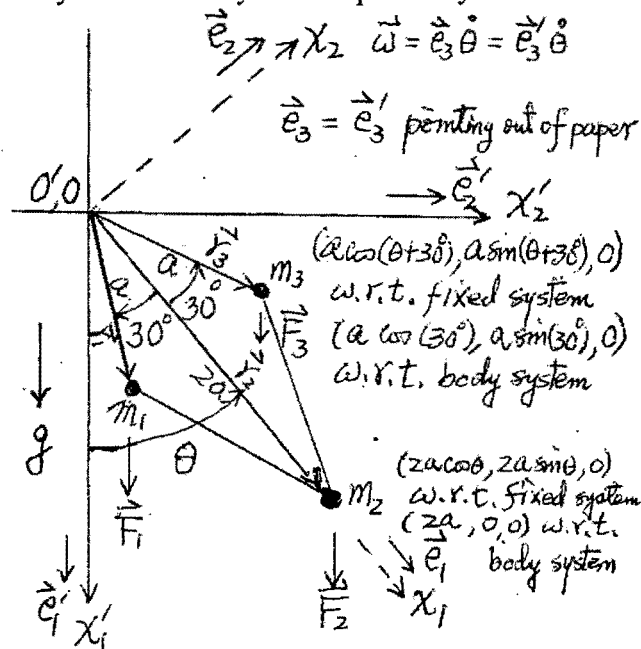 e⃗₂ x₂ ω⃗ = e⃗₃ θ̊ = e⃗₃′ θ̊
e⃗₃ = e⃗₃′ pointing out of paper
0′,0
e⃗₂′ x₂′
a r⃗₃ m₃
a 30° 30°
(a cos(θ+30°), a sin(θ+30°), 0)
w.r.t. fixed system
(a cos(30°), a sin(30°), 0)
w.r.t. body system
F⃗₃
2a
g
m₁
θ
F⃗₁
m₂
(2a cosθ, 2a sinθ, 0)
w.r.t. fixed system
(2a, 0, 0) w.r.t.
body system
e⃗₁
x₁
F⃗₂
e⃗₁′ x₁′